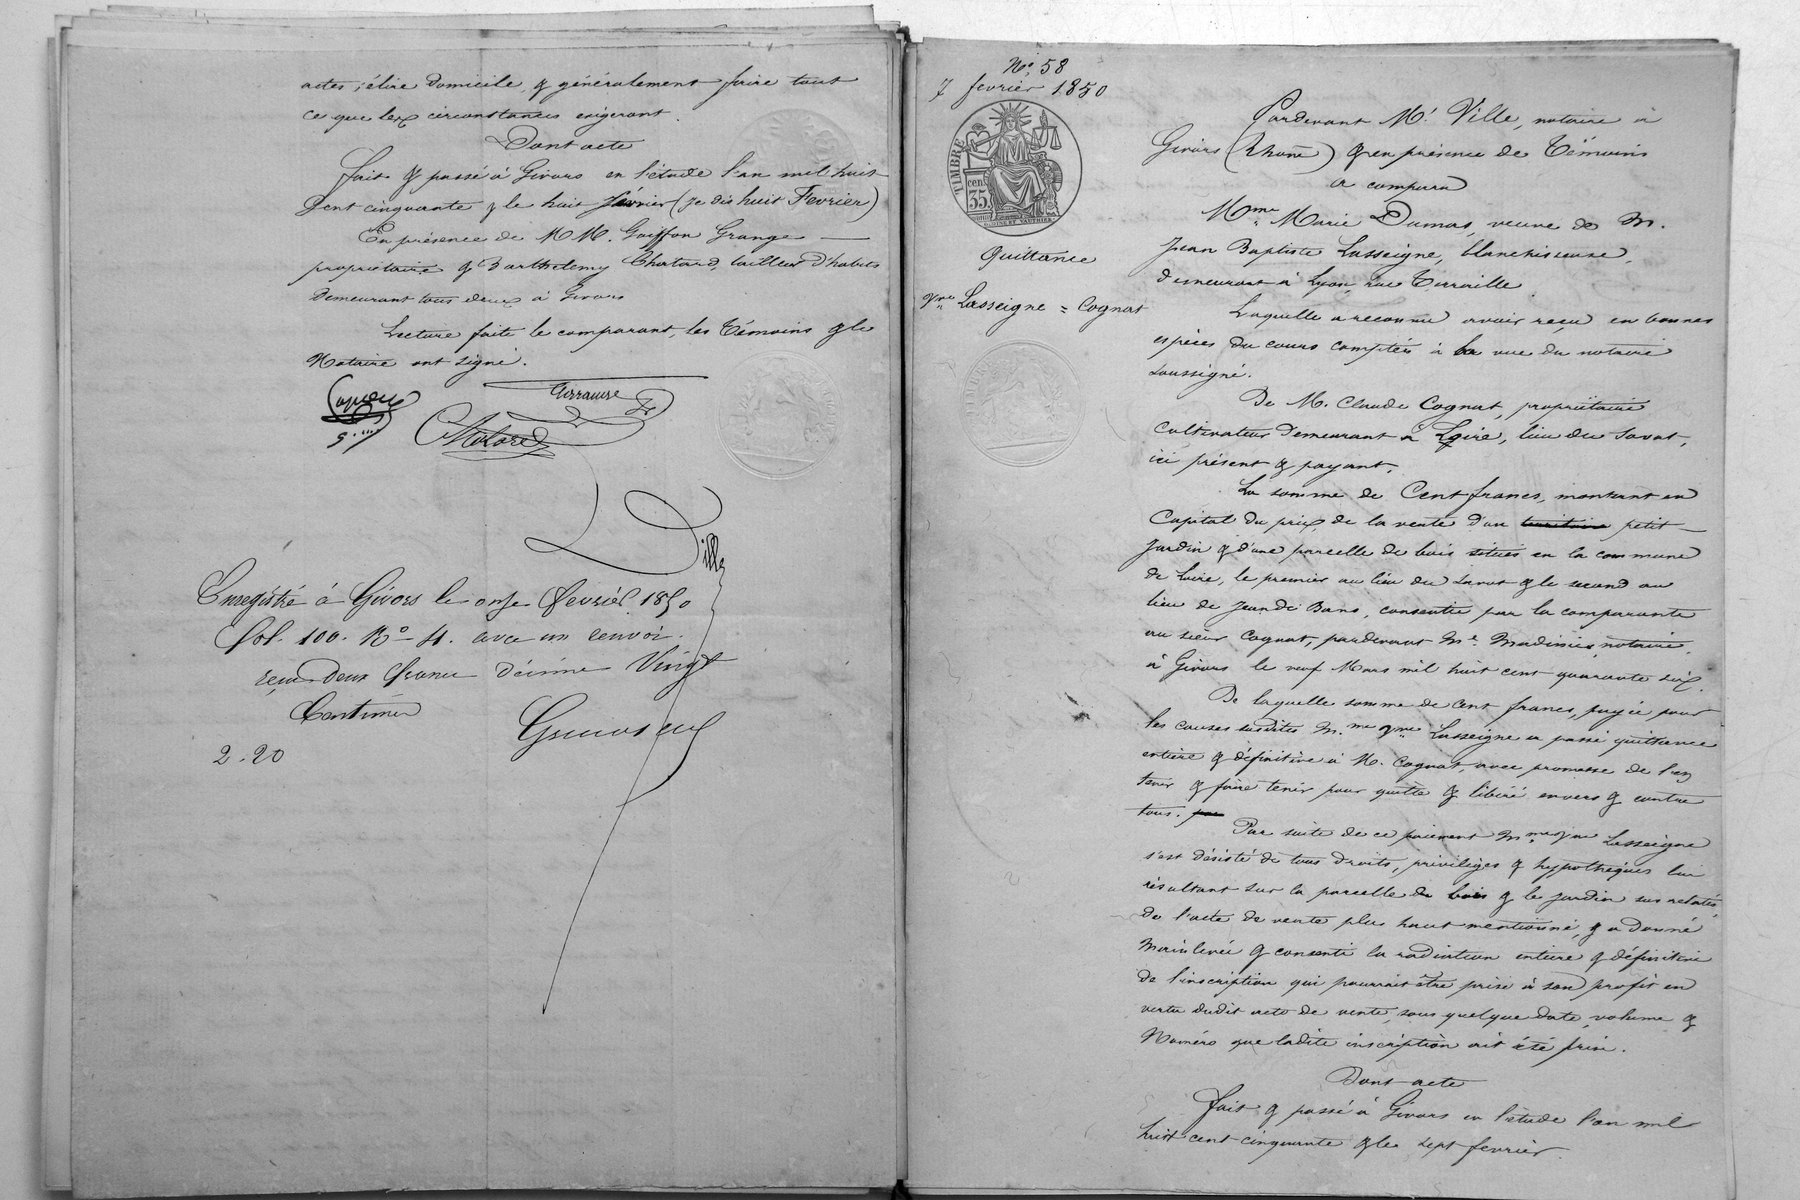 actes, élire domicile, & généralement faire tout
ce que les circonstances exigeront.
Dont acte
fait & passé à Givors en l'étude l'an mil huit
cent cinquante & le huit février (je dis huit Fevrier)
En présence de MM. Goiffon Grange
propriétaire & Barthelemy Chatard, tailleur d'habits
demeurant tous deux à Givors
Lecture faite le comparant, les Témoins & le
Notaire ont signé.
Ville
Enregistré à Givors le onze fevrier 1850
fol. 100. Ro 4. avec un renvoi.
reçu deux francs décime Vingt
Centimes
2.20
No. 58
7 fevrier 1850
TIMBRE
35 cen.
Quittance
Vve Lasseigne = Cognat
Pardevant Me. Ville, notaire à
Givors (Rhône) & en présence de Témoins
a comparu
Mme Marie Dumas, veuve de M.
Jean Baptiste Lasseigne, blanchisseuse,
demeurant à Lyon, rue Terraille
Laquelle a reconnu avoir reçu en bonnes
espèces du cours comptées à la vue du notaire
soussigné.
De M. Claude Cognat, propriétaire
cultivateur demeurant à Loire, lieu du Savat,
ici présent & payant,
La somme de Cent francs, montant en
Capital du prix de la vente d'un territoire petit
Jardin & d'une parcelle de bois situés en la commune
de Loire, le premier au lieu du Savat & le second au
lieu de Jean de Bans, consentie par la comparante
au sieur Cognat, pardevant Me. Madinier notaire,
à Givors le neuf Mars mil huit cent quarante six.
De laquelle somme de Cent francs, payée pour
les causes susdites Mme Vve Lasseigne a passé quittance
entière & définitive à M. Cognat, avec promesse de l'en
tenir & faire tenir pour quitte & libéré envers & contre
tous. par
Par suite de ce paiement Mme Vve Lasseigne
s'est désisté de tous droits, privilèges & hypothèques lui
résultant sur la parcelle de bois & le jardin sus relatés,
de l'acte de vente plus haut mentionné, & a donné
mainlevée & consenti la radiation entière & définitive
de l'inscription qui pourrait être prise à son profit en
vertu dudit acte de vente, sous quelque date, volume &
Numéro que ladite inscription ait été prise.
Dont acte
fait & passé à Givors en l'étude l'an mil
huit cent cinquante & le sept fevrier.